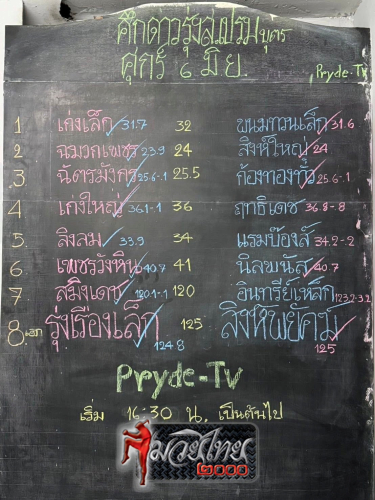 ศึกดาวรุ่งส.แปรมบุตร
ศุกร์ ๖ มิ.ย. Pryde-Tv
1 เก่งเล็ก 31.7 32 ขนมทวนเล็ก 31.6
2 ฉมวกเพชร 23.9 24 สิงห์ใหญ่ 24
3. ฉัตรมังกร 25.6-.1 25.5 ก้องทองทั่ว 25.6-.1
4 เก่งใหญ่ 36.1-.1 36 ฤทธิเดช 36.8-.8
5. สิงลม 33.9 34 แรมบ๊องส์ 34.2-.2
6 เพชรวังหิน 40.7 41 นิลพนัส 40.7
7 สมิงเดช 120.1-.1 120 อินทรีย์เหล็ก 123.2-3.2
8 เอก รุ่งเรืองเล็ก 124.8 125 สิงห์พยัคฆ์ 125
Pryde-Tv
เริ่ม 16:30 น. เป็นต้นไป
มวยไทย
๒๐๐๐